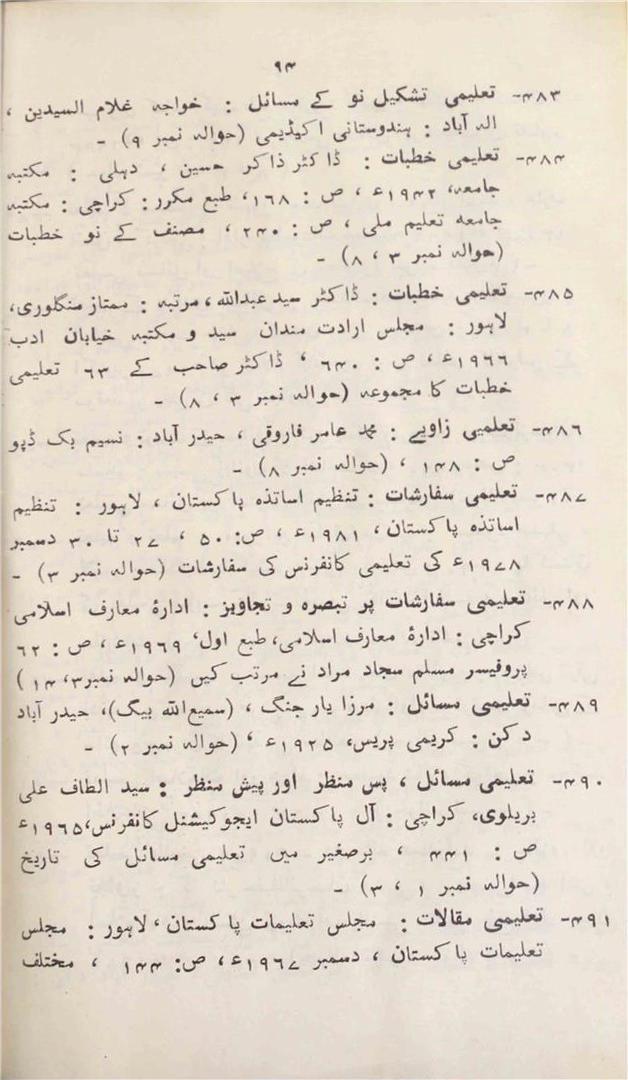 ۹۴
۴۸۳- تعلیمی تشکیل نو کے مسائل : خواجہ غلام السیدین ،
الہ آباد : ہندوستانی اکیڈیمی (حوالہ نمبر ۹) -
۴۸۴- تعلیمی خطبات : ڈاکٹر ذاکر حسین ، دہلی : مکتبہ
جامعہ، ۱۹۴۲ء ، ص : ۱۶۸، طبع مکرر : کراچی : مکتبہ
جامعہ تعلیم ملی ، ص : ۲۴۰ ، مصنف کے نو خطبات
(حوالہ نمبر ۳ ، ۸) -
۴۸۵- تعلیمی خطبات : ڈاکٹر سید عبداللہ ، مرتبہ : ممتاز منگلوری،
لاہور : مجلس ارادت مندان سید و مکتبہ خیابان ادب
۱۹۶۶ء ، ص : ۶۴۰ ، ڈاکٹر صاحب کے ۶۳ تعلیمی
خطبات کا مجموعہ (حوالہ نمبر ۳ ، ۸) -
۴۸۶- تعلمیی زاویے : محمد عامر فاروقی ، حیدر آباد : نسیم بک ڈپو
ص : ۱۴۸ ، (حوالہ نمبر ۸) -
۴۸۷- تعلیمی سفارشات : تنظیم اساتذہ پاکستان ، لاہور : تنظیم
اساتذہ پاکستان ، ۱۹۸۱ء ، ص: ۵۰ ، ۲۷ تا ۳۰ دسمبر
۱۹۷۸ء کی تعلیمی کانفرنس کی سفارشات (حوالہ نمبر ۳) -
۴۸۸- تعلیمی سفارشات پر تبصرہ و تجاویز : ادارۂ معارف اسلامی
کراچی : ادارۂ معارف اسلامی، طبع اول، ۱۹۶۹ء ، ص : ۶۲
پروفیسر مسلم سجاد مراد نے مرتب کیں (حوالہ نمبر ۳، ۱۴)
۴۸۹- تعلیمی مسائل : مرزا یار جنگ ، (سمیع اللہ بیگ)، حیدر آباد
دکن : کریمی پریس، ۱۹۲۵ء ، (حوالہ نمبر ۲) -
۴۹۰- تعلیمی مسائل ، پس منظر اور پیش منظر : سید الطاف علی
بریلوی، کراچی : آل پاکستان ایجوکیشنل کانفرنس، ۱۹۶۵ء
ص : ۴۴۱ ، برصغیر میں تعلیمی مسائل کی تاریخ
(حوالہ نمبر ۱ ، ۳) -
۴۹۱- تعلیمی مقالات : مجلس تعلیمات پاکستان ، لاہور : مجلس
تعلیمات پاکستان ، دسمبر ۱۹۶۷ء، ص: ۱۴۴ ، مختلف